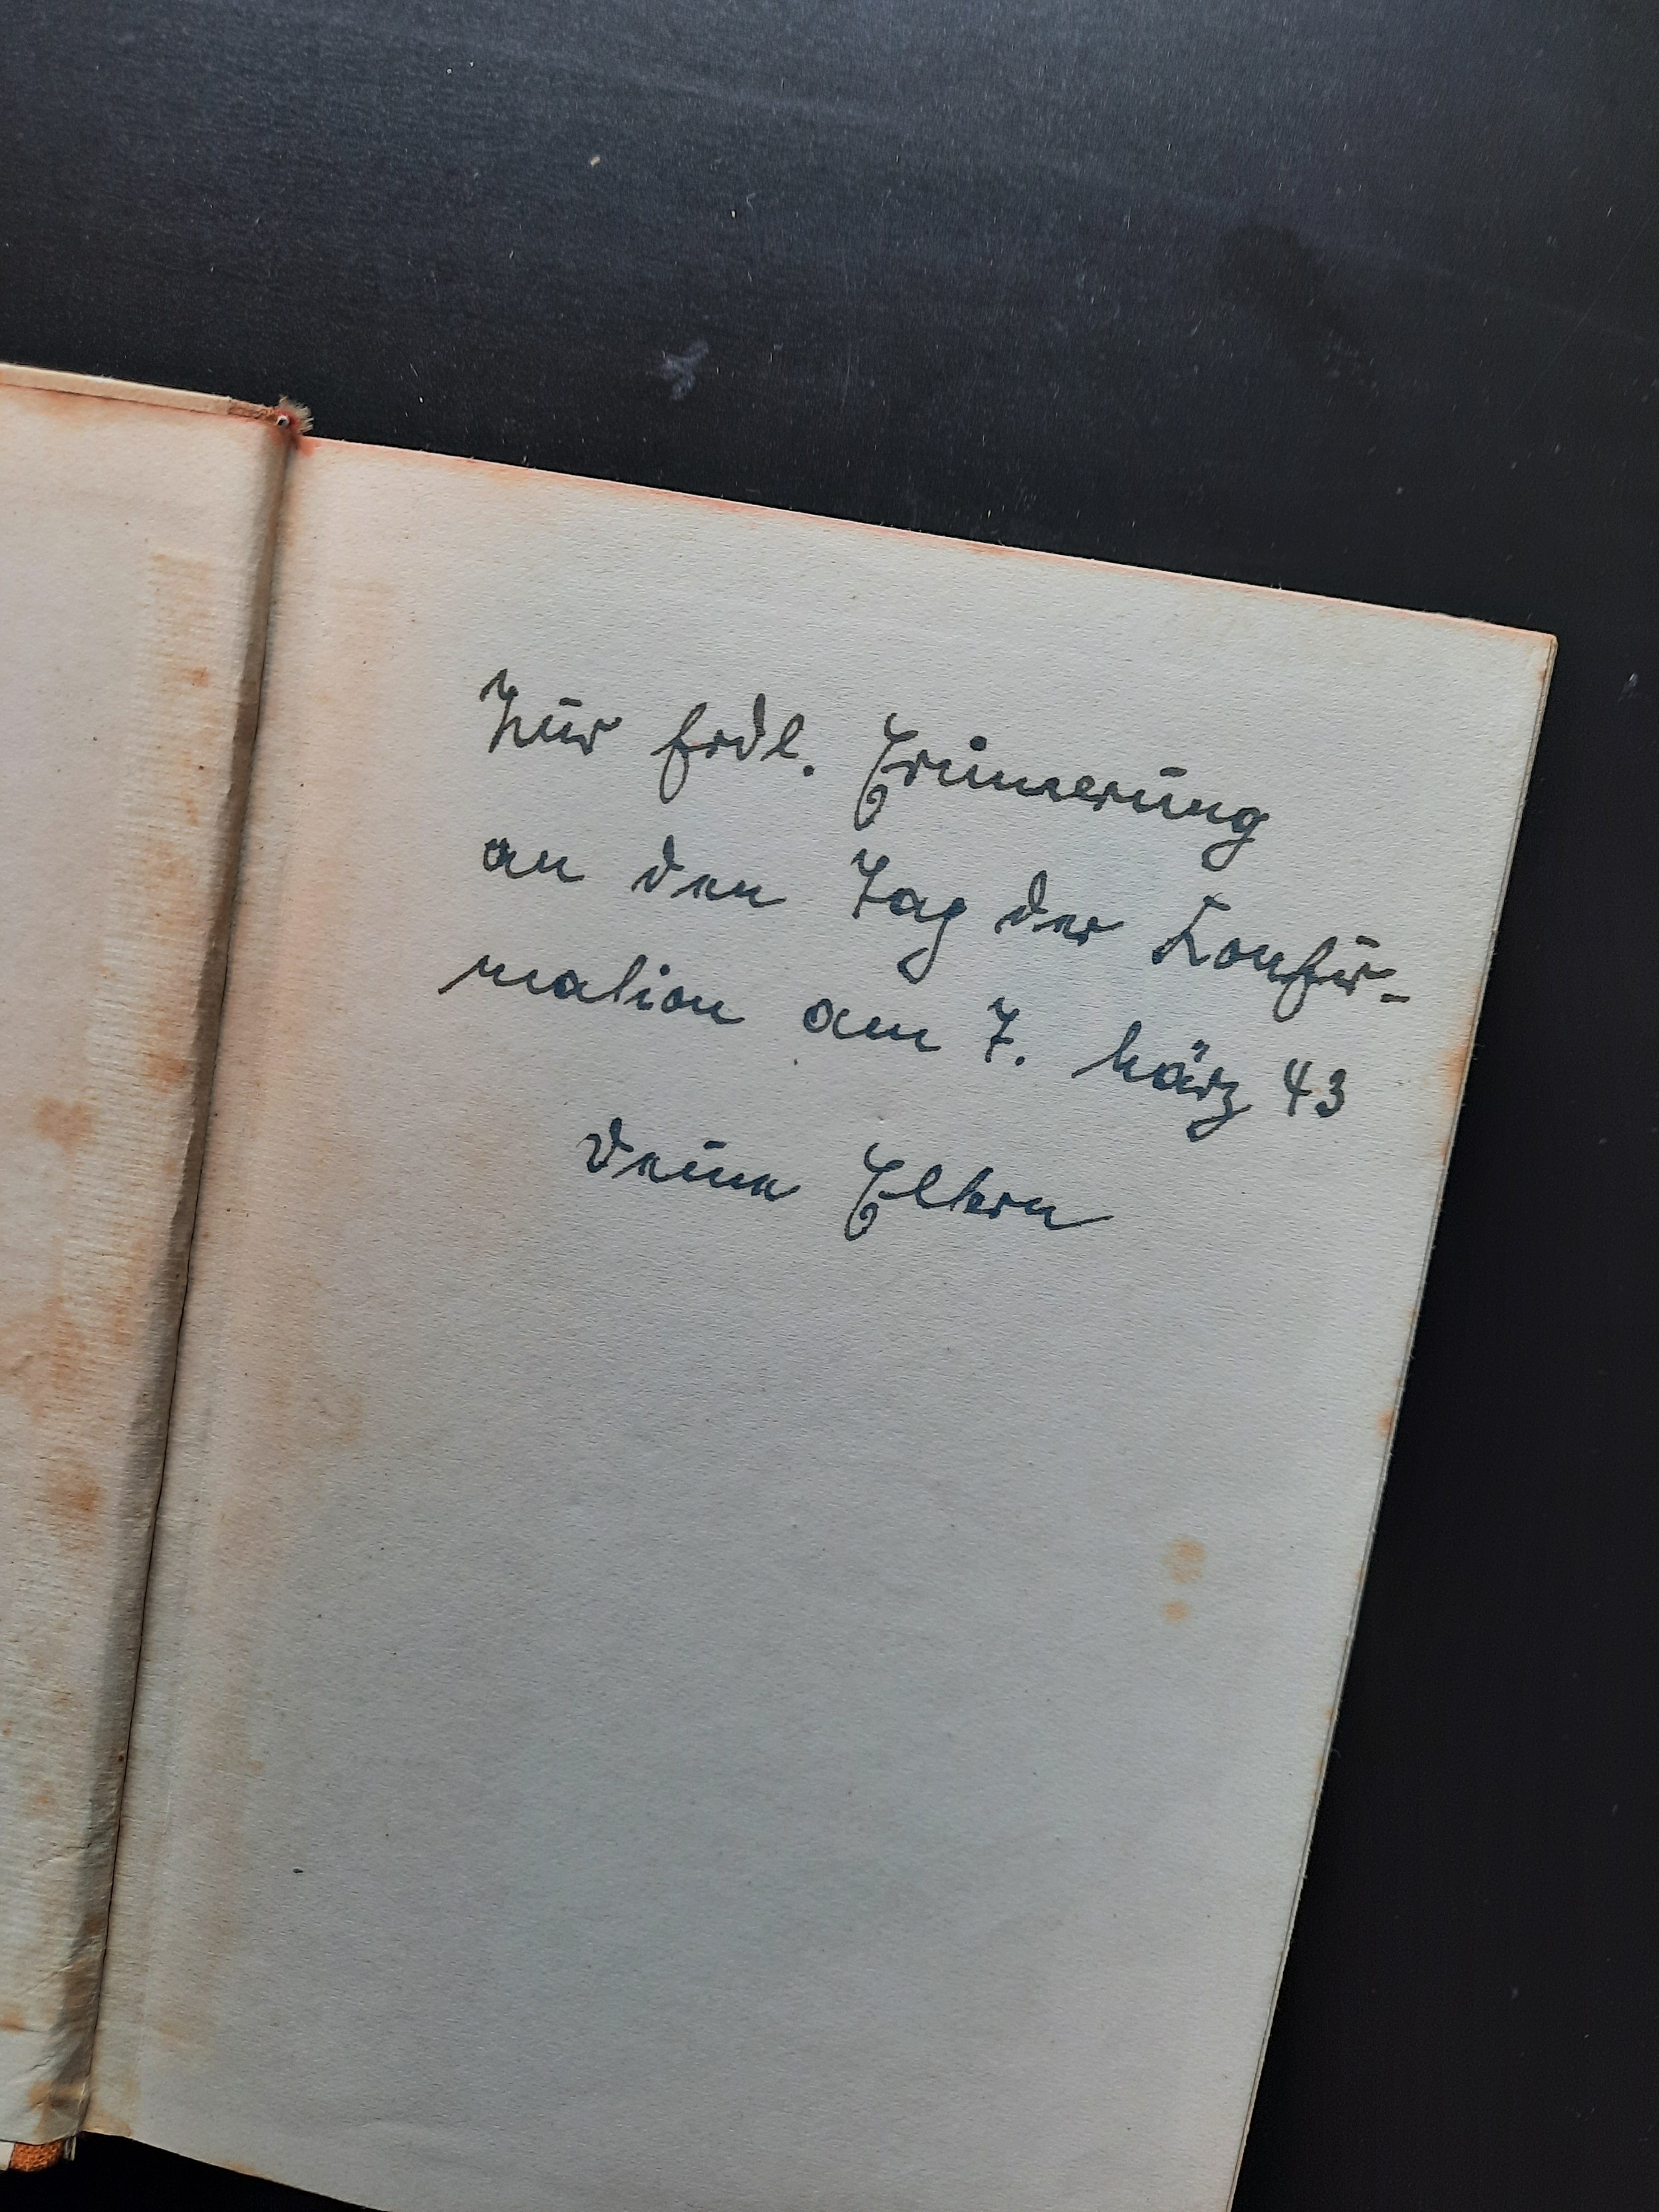 Zur frdl. Erinnerung
an den Tag der Konfir-
mation am 7. März 43
Deine Eltern